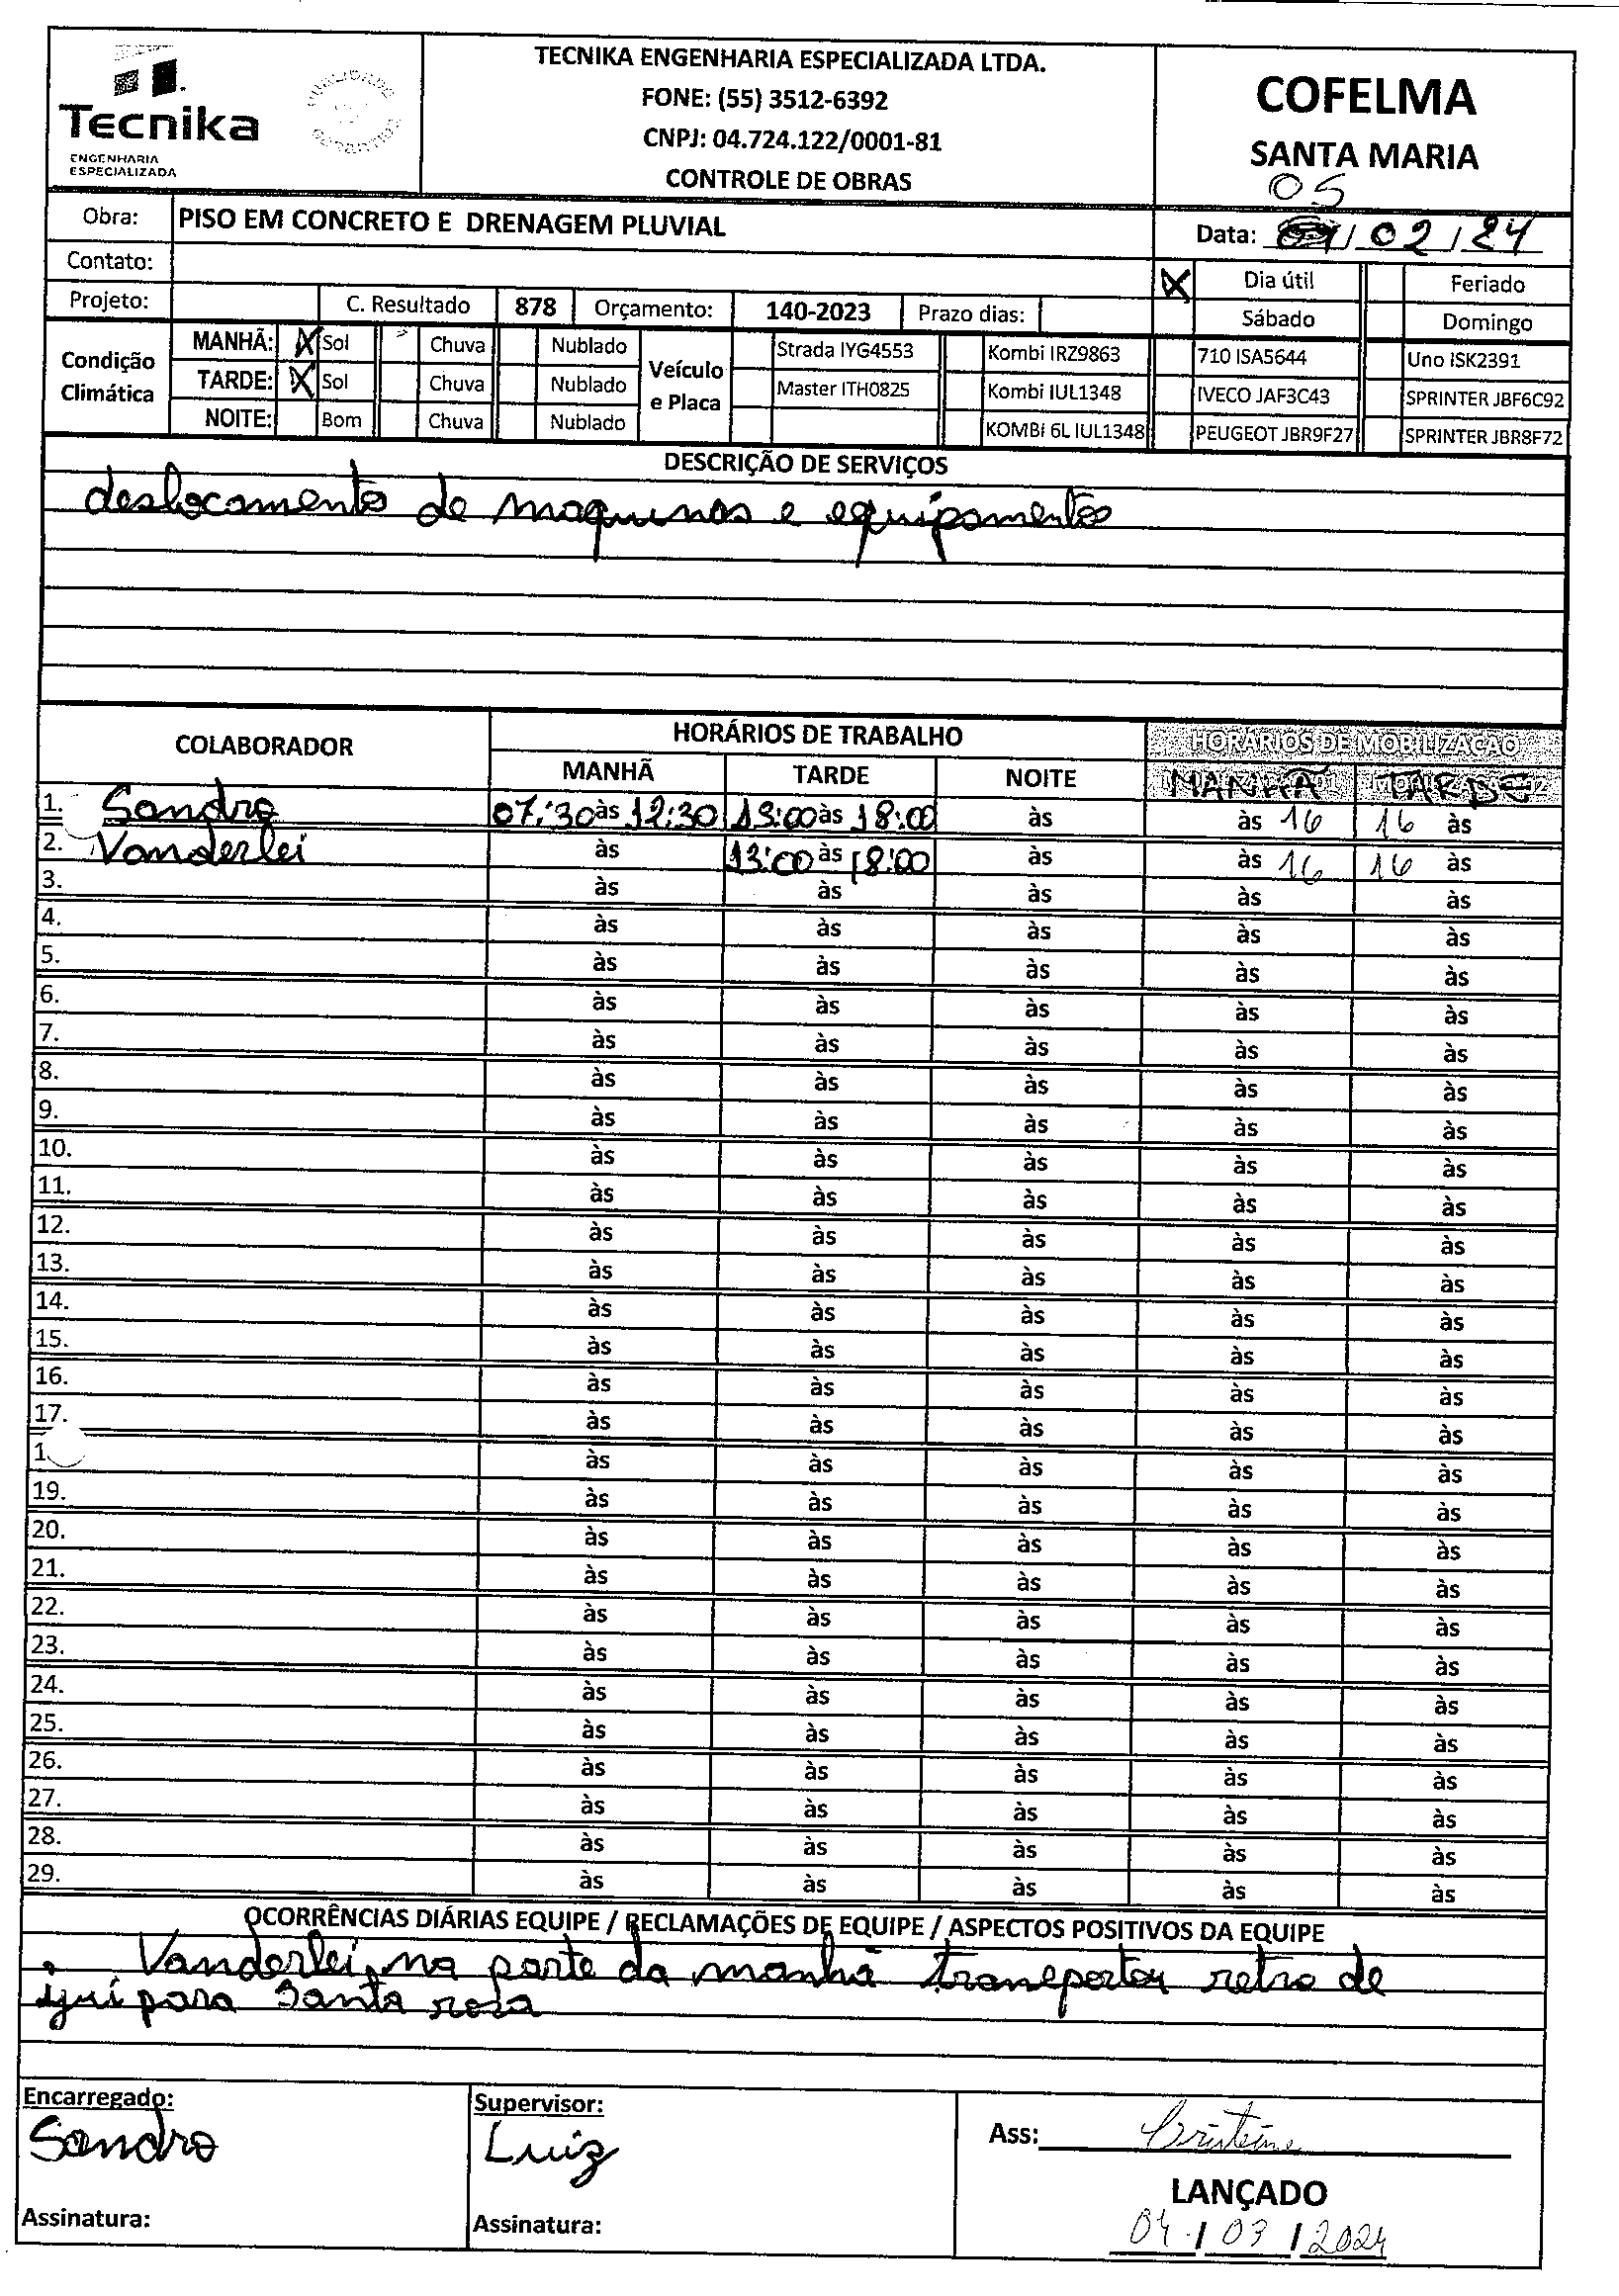 TECNIKA ENGENHARIA ESPECIALIZADA LTDA.
FONE: (55) 3512-6392
CNPJ: 04.724.122/0001-81
CONTROLE DE OBRAS
Tecnika
ENGENHARIA
ESPECIALIZADA
COFELMA
SANTA MARIA
05
Obra: PISO EM CONCRETO E DRENAGEM PLUVIAL
Data: / 02 / 24
Contato:
X Dia útil Feriado
Projeto: C. Resultado 878 Orçamento: 140-2023 Prazo dias:
Sábado Domingo
Condição Climática
MANHÃ: X Sol Chuva Nublado
TARDE: X Sol Chuva Nublado
NOITE: Bom Chuva Nublado
Veículo e Placa
Strada IYG4553 Kombi IRZ9863 710 ISA5644 Uno ISK2391
Master ITH0825 Kombi IUL1348 IVECO JAF3C43 SPRINTER JBF6C92
KOMBI 6L IUL1348 PEUGEOT JBR9F27 SPRINTER JBR8F72
DESCRIÇÃO DE SERVIÇOS
deslocamento de maquinas e equipamentos
COLABORADOR HORÁRIOS DE TRABALHO HORÁRIOS DE MOBILIZAÇÃO
MANHÃ TARDE NOITE MANHÃ TARDE
1. Sandro 07:30 às 12:30 13:00 às 18:00 às às 16 16 às
2. Vanderlei às 13:00 às 18:00 às às 16 16 às
3. às às às às às
4. às às às às às
5. às às às às às
6. às às às às às
7. às às às às às
8. às às às às às
9. às às às às às
10. às às às às às
11. às às às às às
12. às às às às às
13. às às às às às
14. às às às às às
15. às às às às às
16. às às às às às
17. às às às às às
1 às às às às às
19. às às às às às
20. às às às às às
21. às às às às às
22. às às às às às
23. às às às às às
24. às às às às às
25. às às às às às
26. às às às às às
27. às às às às às
28. às às às às às
29. às às às às às
OCORRÊNCIAS DIÁRIAS EQUIPE / RECLAMAÇÕES DE EQUIPE / ASPECTOS POSITIVOS DA EQUIPE
Vanderlei, na parte da manhã transportou retro de
ijui para Santa rosa
Encarregado:
Sandro
Assinatura:
Supervisor:
Luiz
Assinatura:
Ass:
LANÇADO
04 / 03 / 2024